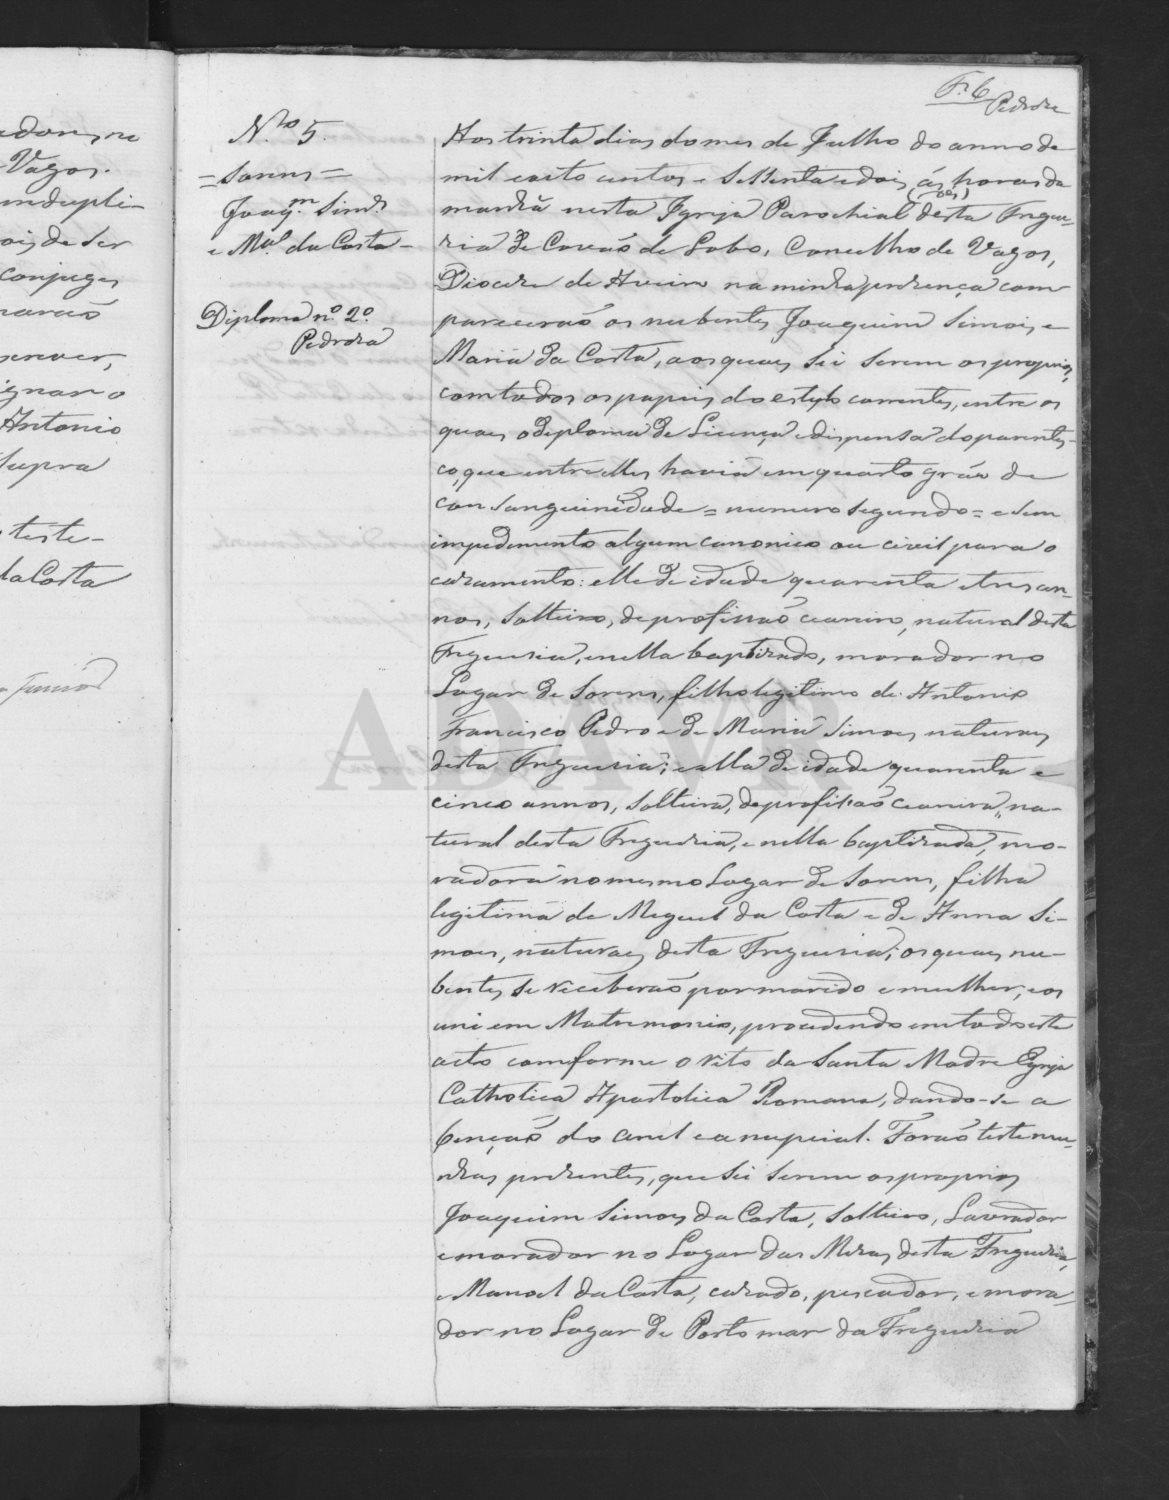 F. 6
Pedroza
N.ro 5.
= Sorens =
Joaq.m Sim.s
e M.a da Costa -
Diploma n.o 2.o
Pedroza
Aos trinta dias do mes de Julho do anno de
mil oito centos e settenta e dois, ás horas da
(oês)
manhã nesta Igreja Parochial desta Fregue-
zia de Covaõ de Lobo, Concelho de Vagos,
Diocese de Aveiro na minha prezença com-
pareceraõ os nubentes Joaquim Simois, e
Maria da Costa, aos quaes sei serem os proprios,
com todos os papeis do estylo correntes, entre os
quaes o diploma de Licença e dispensa do parentes-
co, que entre elles havia em quarto gráo de
consanguinidade = numero segundo = e sem
impedimento algum canonico ou civil para o
cazamento: elle de idade quarenta e tres an-
nos, solteiro, de profissaõ ceareiro, natural desta
Freguezia, e nella baptizado, morador no
Logar de Sorens, filho legitimo de Antonio
Francisco Pedro e de Maria Simoes naturaes
desta Freguezia; e ella de idade quarenta e
cinco annos, solteira, de profissaõ ceareira, na-
tural desta Freguezia, e nella baptizada, mo-
radora no mesmo Logar de Sorens, filha
legitima de Miguel da Costa e de Anna Si-
moes, naturaes desta Freguezia; os quaes nu-
bentes se receberaõ por marido e mulher, e os
uni em Matrimonio, procedendo em todo este
acto comforme o rito da Santa Madre Egreja
Catholica Apostolica Romana, dando-se a
bençaõ do anel e a nupcial. Foraõ testemu-
nhas prezentes, que sei serem os proprios
Joaquim Simoes da Costa, solteiro, Lavrador
e morador no Logar das Mezas desta Freguezia,
e Manoel da Costa, cazado, pescador, e mora-
dor no Logar de Porto mar da Freguezia
adores, no
Vagos.
m dupli-
ois de ser
conjuges
naraõ
screver,
ignar o
Antonio
supra
teste-
da Costa
Junior
ADAVR